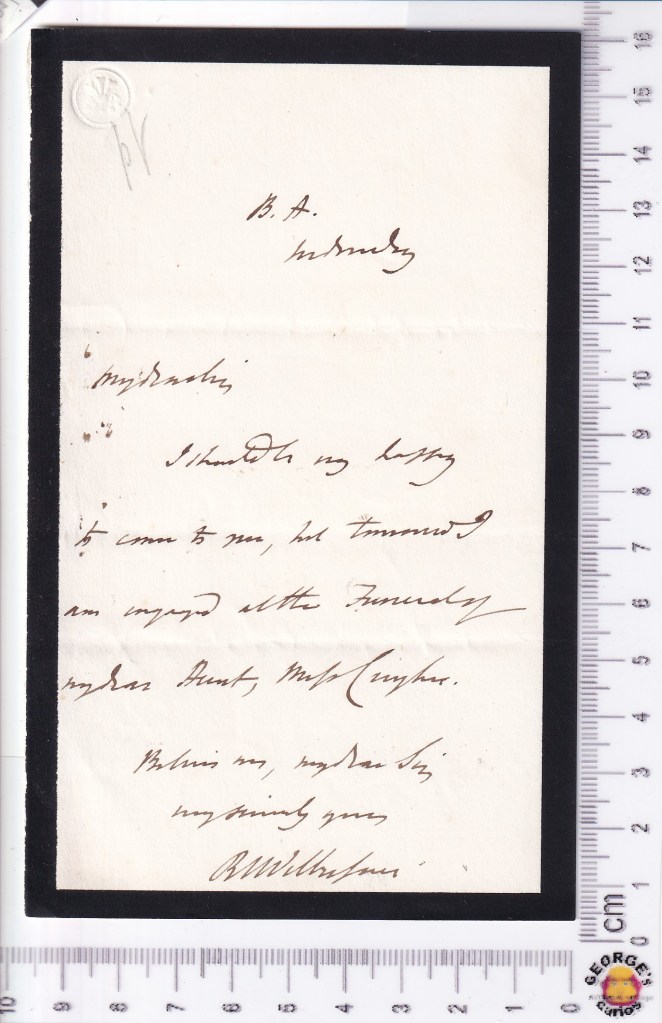 B. A.
Wednesday
My dear Sir
I should be very happy
to come to you, but tomorrow I
am engaged at the Funeral of
my dear Aunt, Miss
Believe me, my dear Sir
very sincerely yours
cm
0 1 2 3 4 5 6 7 8 9 10 11 12 13 14 15 16
10 9 8 7 6 5 4 3 2 1 0
GEORGE's
curios